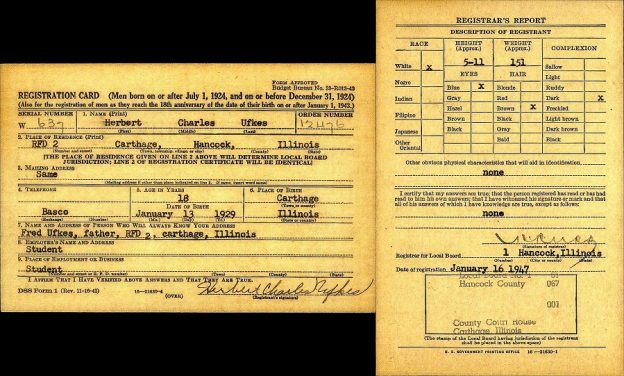 FORM APPROVED
Budget Bureau No. 33-R012-43
REGISTRATION CARD (Men born on or after July 1, 1924, and on or before December 31, 1924)
(Also for the registration of men as they reach the 18th anniversary of the date of their birth on or after January 1, 1943.)
SERIAL NUMBER 1. NAME (Print) ORDER NUMBER
W 632 Herbert Charles Ufkes 12476
(First) (Middle) (Last)
2. PLACE OF RESIDENCE (Print)
RFD 2 Carthage, Hancock, Illinois
(Number and street) (Town, township, village, or city) (County) (State)
[THE PLACE OF RESIDENCE GIVEN ON LINE 2 ABOVE WILL DETERMINE LOCAL BOARD
JURISDICTION; LINE 2 OF REGISTRATION CERTIFICATE WILL BE IDENTICAL]
3. MAILING ADDRESS
Same
[Mailing address if other than place indicated on line 2. If same, insert word same]
4. TELEPHONE 5. AGE IN YEARS 6. PLACE OF BIRTH
18 Carthage
DATE OF BIRTH (Town or county)
Basco January 13 1929 Illinois
(Exchange) (Number) (Mo.) (Day) (Yr.) (State or country)
7. NAME AND ADDRESS OF PERSON WHO WILL ALWAYS KNOW YOUR ADDRESS
Fred Ufkes, father, RFD 2, carthage, Illinois
8. EMPLOYER'S NAME AND ADDRESS
Student
9. PLACE OF EMPLOYMENT OR BUSINESS
Student
(Number and street or R. F. D. number) (Town) (County) (State)
I AFFIRM THAT I HAVE VERIFIED ABOVE ANSWERS AND THAT THEY ARE TRUE.
DSS Form 1 (Rev. 11-16-42) 16-21630-4 Herbert Charles Ufkes
(OVER) (Registrant's signature)
REGISTRAR'S REPORT
DESCRIPTION OF REGISTRANT
RACE HEIGHT (Approx.) WEIGHT (Approx.) COMPLEXION
White X 5-11 151 Sallow
EYES HAIR Light
Negro Blue X Blonde Ruddy
Indian Gray Red Dark X
Hazel Brown X Freckled
Filipino Brown Black Light brown
Japanese Black Gray Dark brown
Other Oriental Bald Black
Other obvious physical characteristics that will aid in identification
none
I certify that my answers are true; that the person registered has read or has had
read to him his own answers; that I have witnessed his signature or mark and that
all of his answers of which I have knowledge are true, except as follows:
none
(Signature of registrar)
Registrar for Local Board 1 Hancock, Illinois
(Number) (City or county) (State)
Date of registration January 16 1947
Local Board No. 1 61
Hancock County 067
001
County Court House
Carthage, Illinois
(The stamp of the Local Board having jurisdiction of the registrant
shall be placed in the above space)
U. S. GOVERNMENT PRINTING OFFICE 16-21630-1